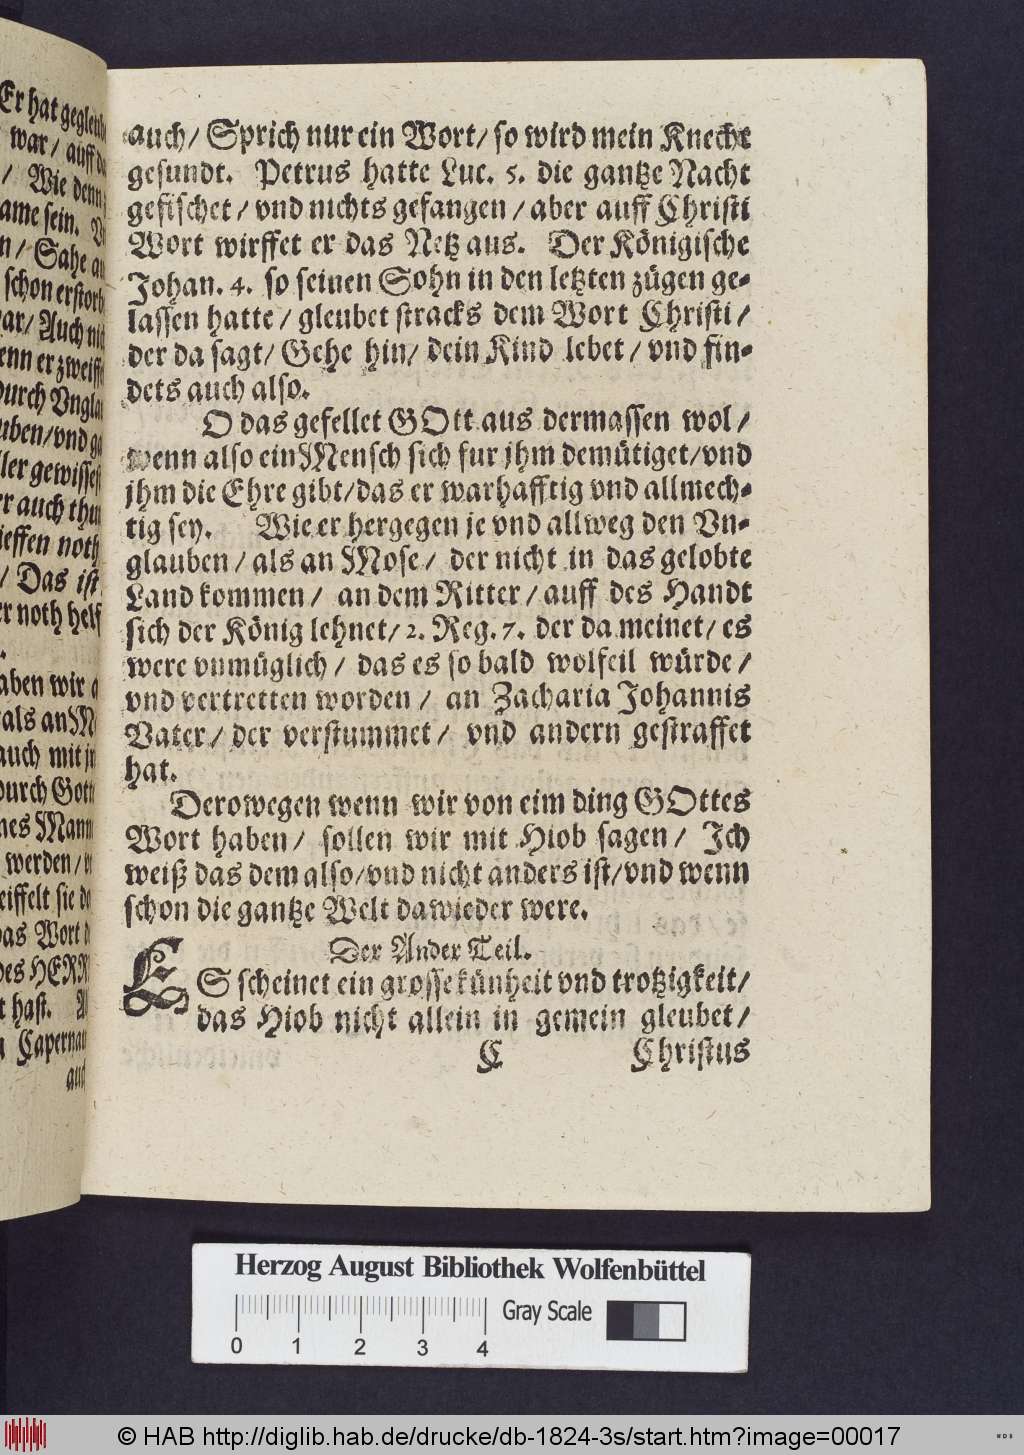 Er hat
war/ auff
/ Wie denn
ame sein.
n/ Sahe
schon
ar/ Auch
enn er
durch
uben/vnd
ller
er auch
ieffen noth
/ Das ist
er noth
aben wir
als an
auch mit
durch
nes
werden/
eiffelt sie
das Wort
des HERR
t hast.
auch/ Sprich nur ein Wort/ so wird mein Knecht
gesundt. Petrus hatte Luc. 5. die gantze Nacht
gefischet/ vnd nichts gefangen/ aber auff Christi
Wort wirffet er das Netz aus. Der Königische
Johan. 4. so seinen Sohn in den letzten zügen ge-
lassen hatte/ gleubet stracks dem Wort Christi/
der da sagt/ Gehe hin/ dein Kind lebet/ vnd fin-
dets auch also.
O das gefellet GOtt aus dermassen wol/
wenn also ein Mensch sich fur jhm demütiget/vnd
jhm die Ehre gibt/das er warhafftig vnd allmech-
tig sey. Wie er hergegen je vnd allweg den Vn-
glauben/ als an Mose/ der nicht in das gelobte
Land kommen/ an dem Ritter/ auff des Handt
sich der König lehnet/ 2. Reg. 7. der da meinet/ es
were vnmüglich/ das es so bald wolfeil würde/
vnd vertretten worden/ an Zacharia Johannis
Vater/ der verstummet/ vnd andern gestraffet
hat.
Derowegen wenn wir von eim ding GOttes
Wort haben/ sollen wir mit Hiob sagen/ Ich
weiß das dem also/vnd nicht anders ist/vnd wenn
schon die gantze Welt dawieder were.
Der Ander Teil.
ES scheinet ein grosse künheit vnd trotzigkeit/
das Hiob nicht allein in gemein gleubet/
C Christus
Herzog August Bibliothek Wolfenbüttel
Gray Scale
0 1 2 3 4
© HAB http://diglib.hab.de/drucke/db-1824-3s/start.htm?image=00017